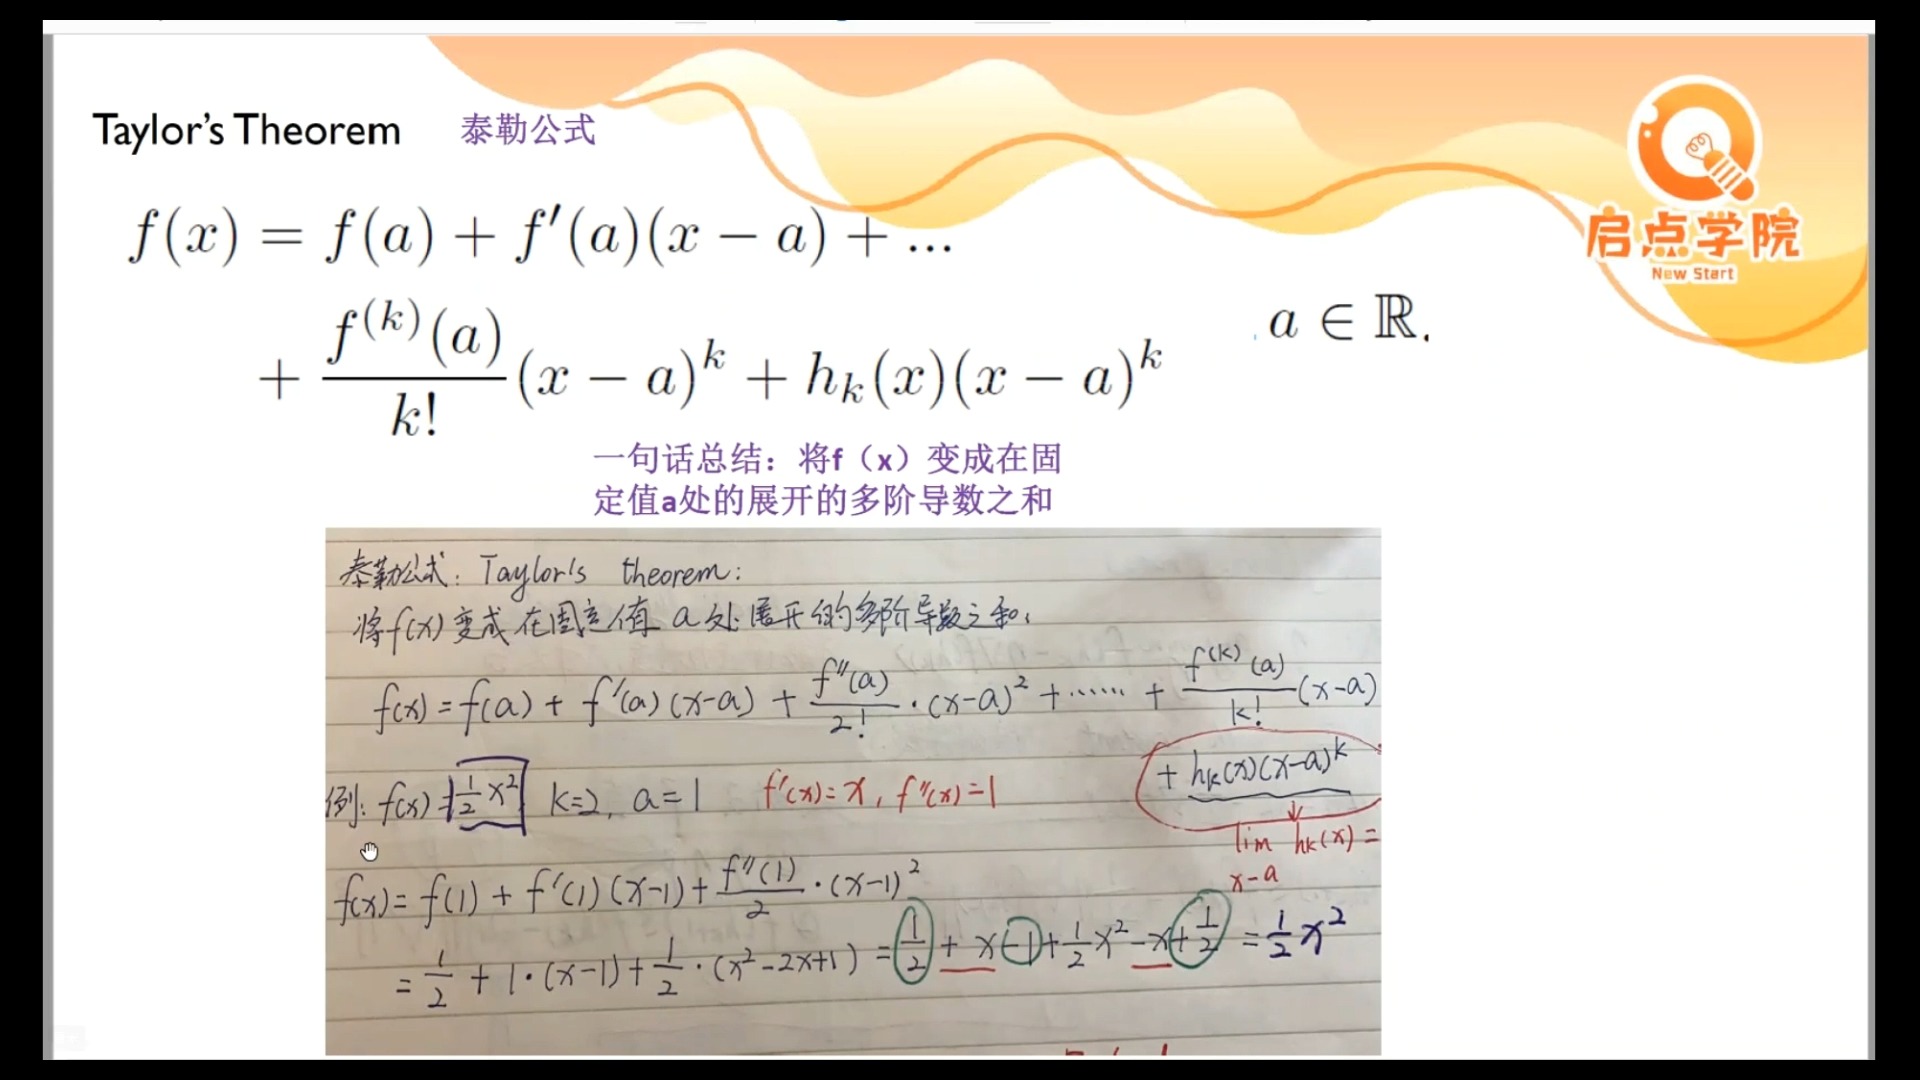 Taylor's Theorem 泰勒公式
f(x) = f(a) + f′(a)(x − a) + ...
+ f^(k)(a)/k! (x − a)^k + h_k(x)(x − a)^k
a ∈ ℝ.
启点学院
New Start
一句话总结：将f（x）变成在固
定值a处的展开的多阶导数之和
泰勒公式: Taylor's theorem:
将f(x)变成在固定值a处展开的多阶导数之和.
f(x) = f(a) + f′(a)(x-a) + f″(a)/2! · (x-a)² + ...... + f^(k)(a)/k! (x-a)
+ h_k(x)(x-a)^k
例: f(x) = 1/2 x² k=2, a=1 f′(x)=x, f″(x)=1
lim h_k(x) =
x-a
f(x) = f(1) + f′(1)(x-1) + f″(1)/2 · (x-1)²
= 1/2 + 1·(x-1) + 1/2 · (x²-2x+1) = 1/2 + x -1 + 1/2 x² - x + 1/2 = 1/2 x²